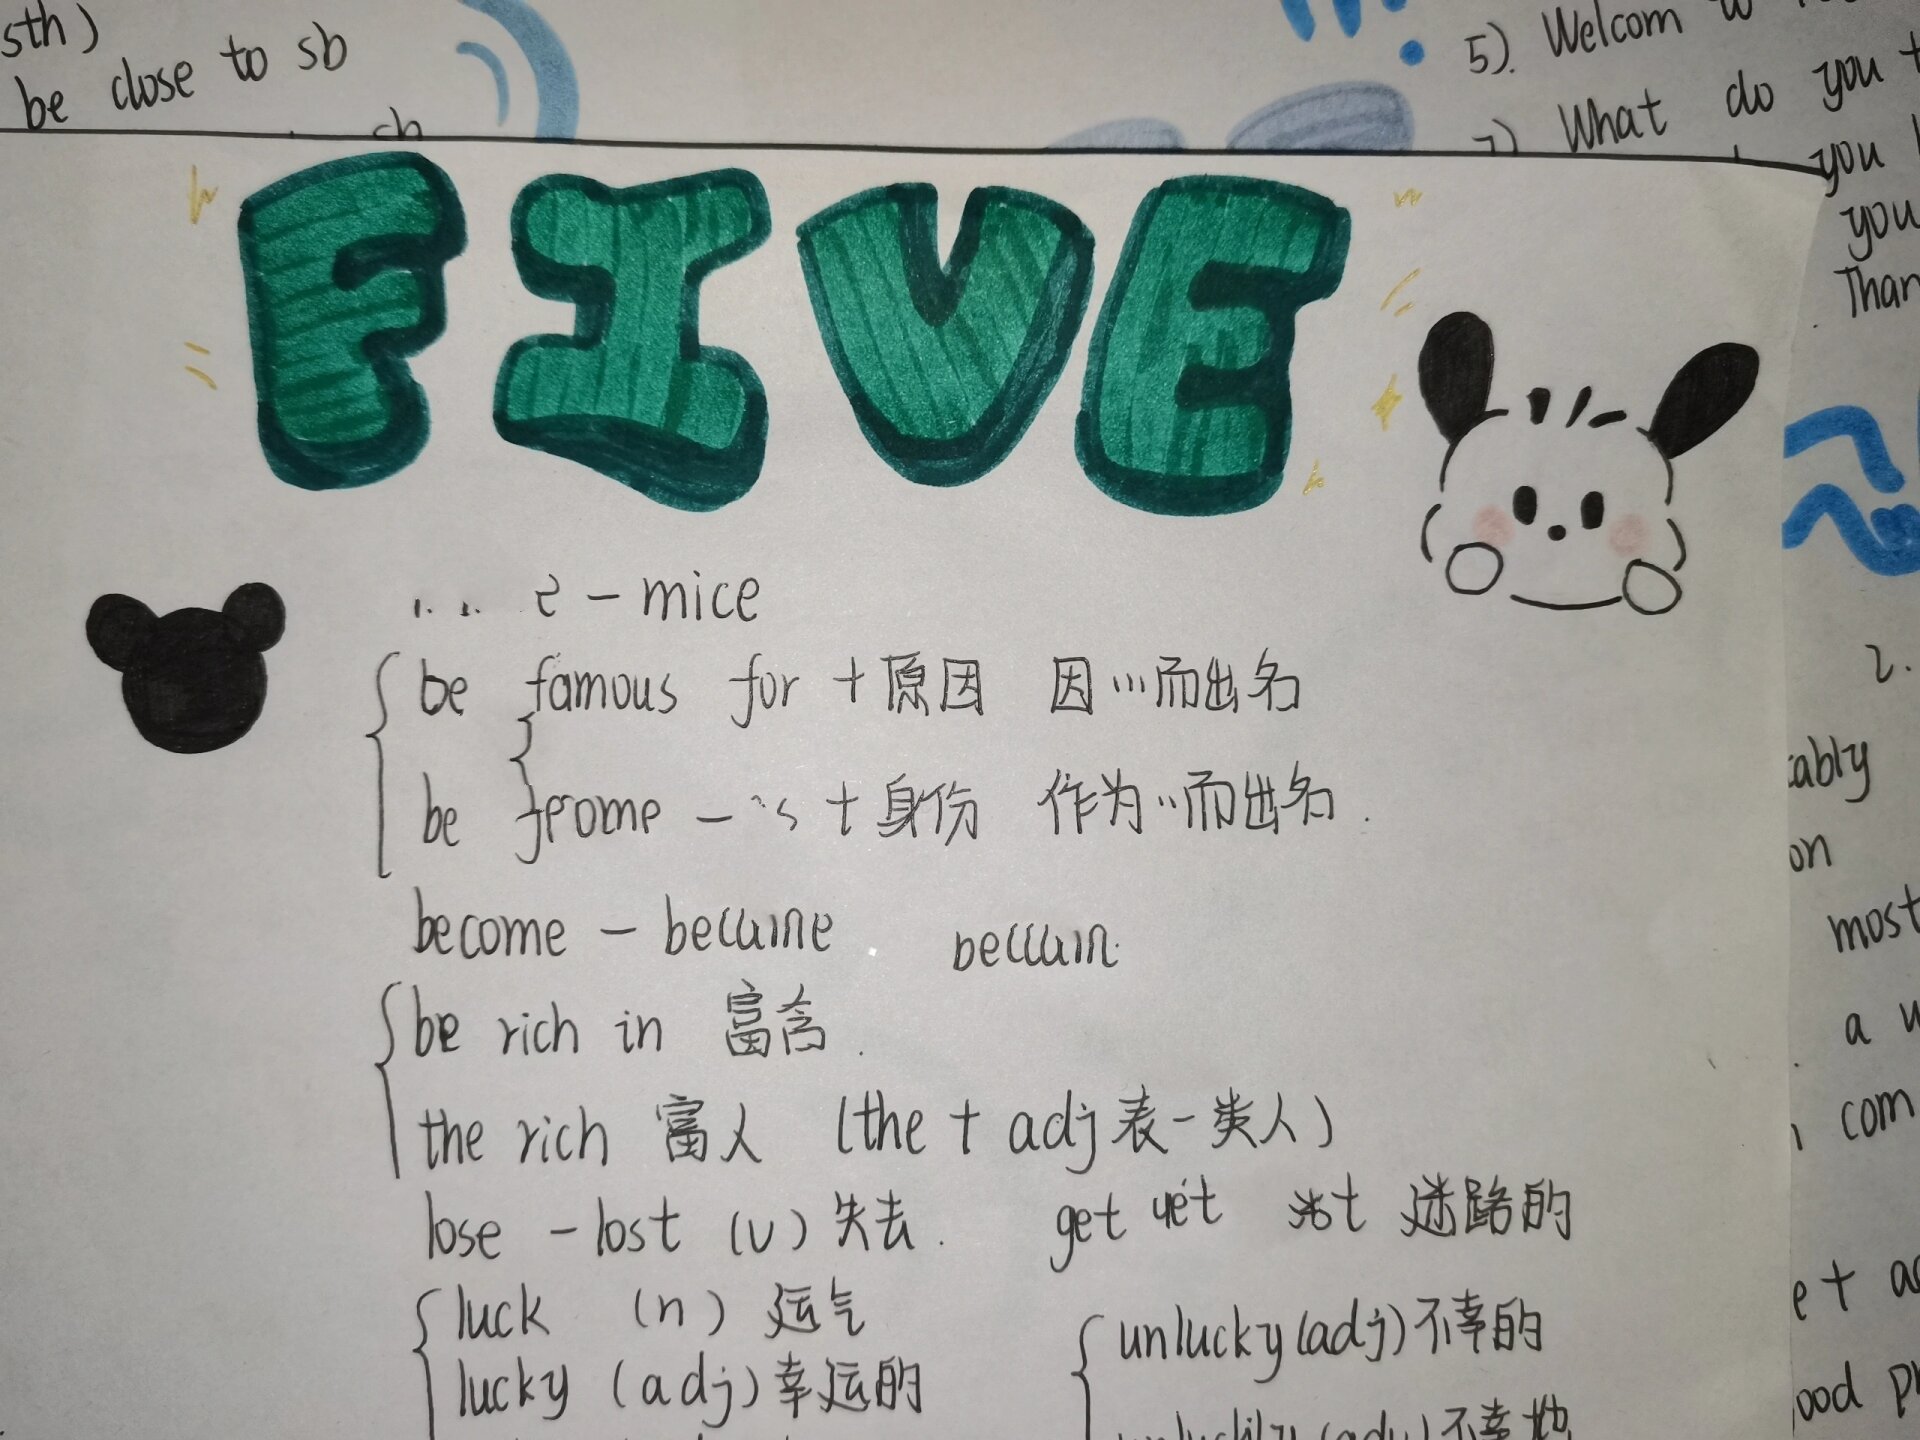 sth)
be close to sb
5). Welcom
7) What do you t
you
you
Than
FIVE
- mice
be famous for + 原因 因…而出名
be + 身份 作为…而出名.
become -
be rich in 富含.
the rich 富人 (the + adj 表一类人)
lose - lost (v) 失去. get 迷路的
luck (n) 运气
lucky (adj) 幸运的
unlucky (adj) 不幸的
2.
cably
on
most
a
com
e + ad
ood